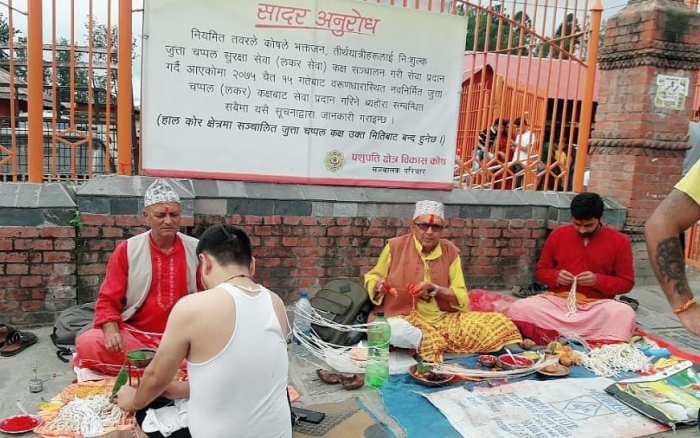 सादर अनुरोध
नियमित तवरले कोषले भक्तजन, तीर्थयात्रीहरूलाई निःशुल्क
जुत्ता चप्पल सुरक्षा सेवा (लकर सेवा) कक्ष सञ्चालन गरी सेवा प्रदान
गर्दै आएकोमा २०७५ चैत १५ गतेबाट वरूणधारास्थित नवनिर्मित जुत्ता
चप्पल (लकर) कक्षबाट सेवा प्रदान गरिने ब्यहोरा सम्बन्धित
सबैमा यसै सूचनाद्वारा जानकारी गराइन्छ ।
(हाल कोर क्षेत्रमा सञ्चालित जुत्ता चप्पल कक्ष उक्त मितिबाट बन्द हुनेछ ।)
पशुपति क्षेत्र विकास कोष
सञ्चालक परिषद्